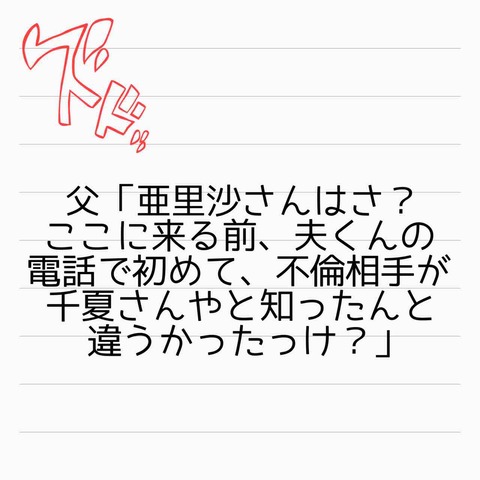 ズドッ
父「亜里沙さんはさ？
ここに来る前、夫くんの
電話で初めて、不倫相手が
千夏さんやと知ったんと
違うかったっけ？」